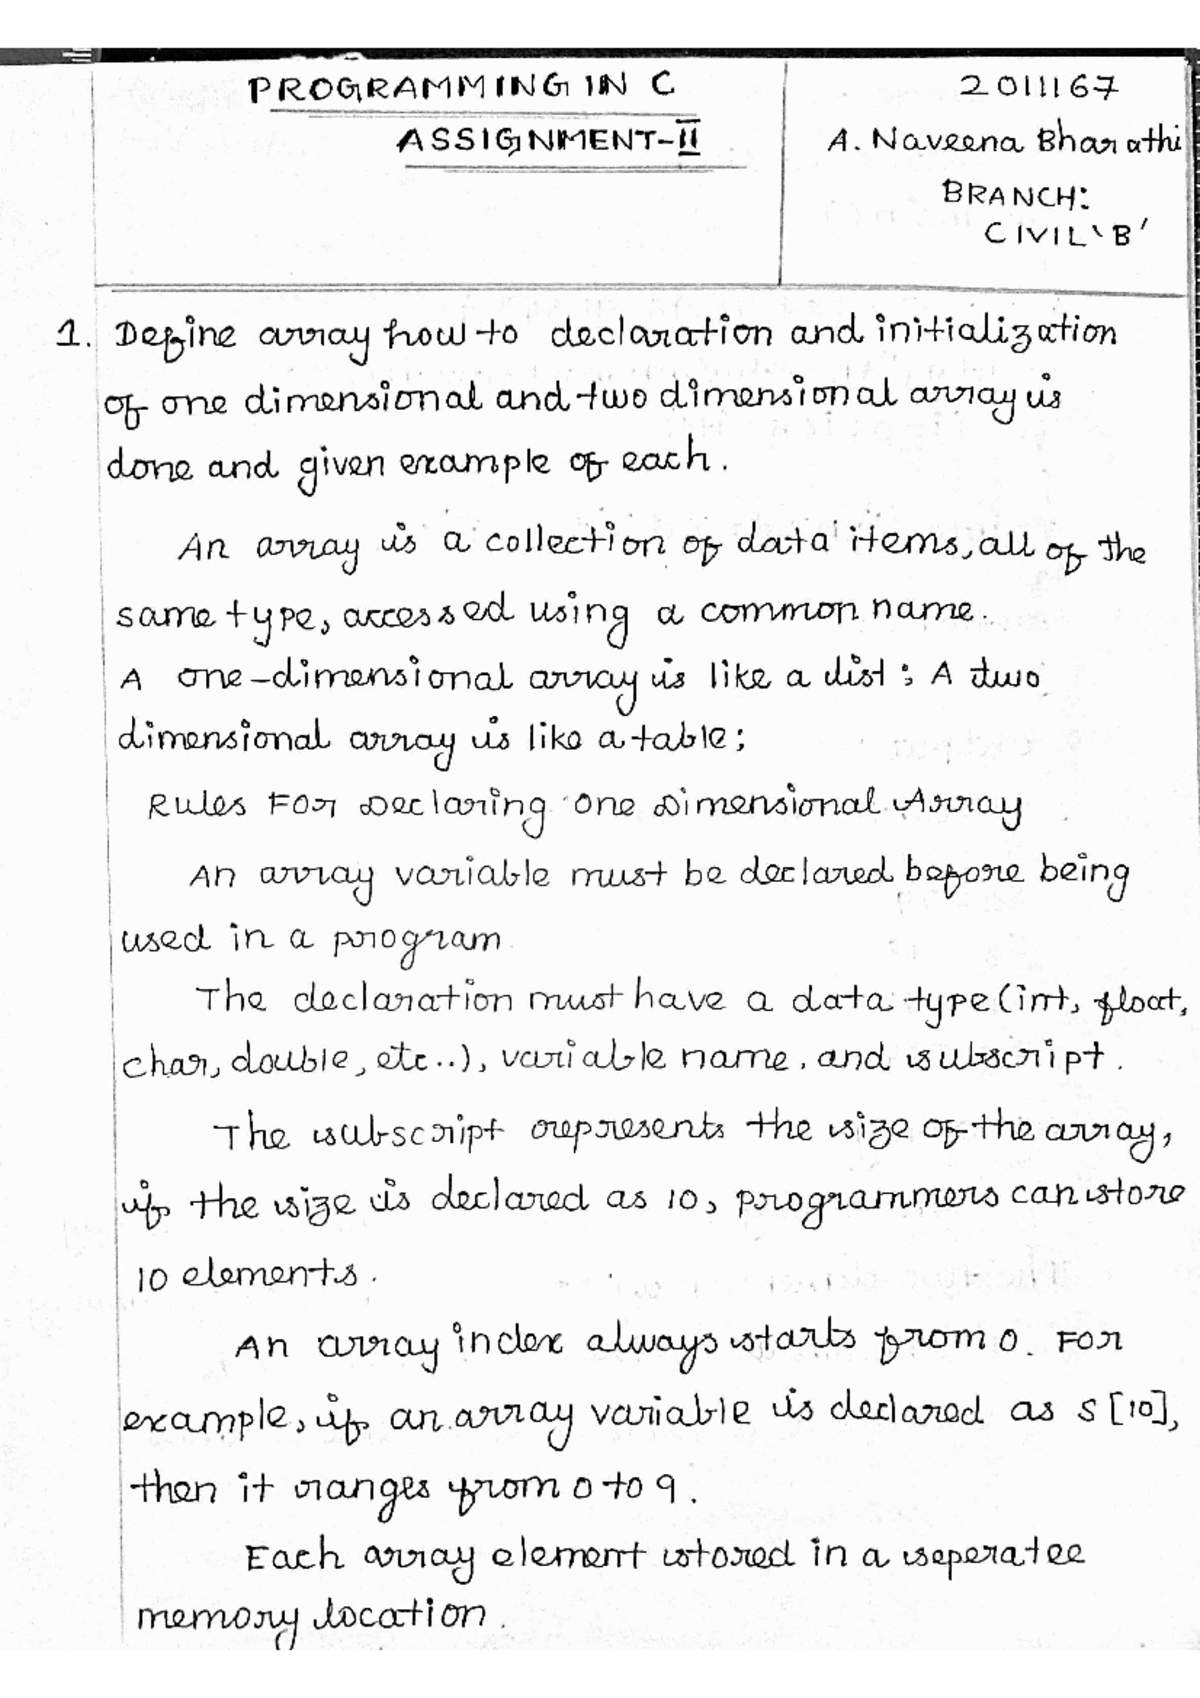 PROGRAMMING IN C
ASSIGNMENT-II
2011167
A. Naveena Bharathi
BRANCH:
CIVIL 'B'
1. Define array how to declaration and initialization
of one dimensional and two dimensional array is
done and given example of each.
An array is a collection of data items, all of the
same type, accessed using a common name.
A one-dimensional array is like a list; A two
dimensional array is like a table;
Rules For Declaring One Dimensional Array
An array variable must be declared before being
used in a program
The declaration must have a data type (int, float,
char, double, etc..), variable name, and subscript.
The subscript represents the size of the array,
if the size is declared as 10, programmers can store
10 elements.
An array index always starts from 0. For
example, if an array variable is declared as s[10],
then it ranges from 0 to 9.
Each array element stored in a seperatee
memory location.